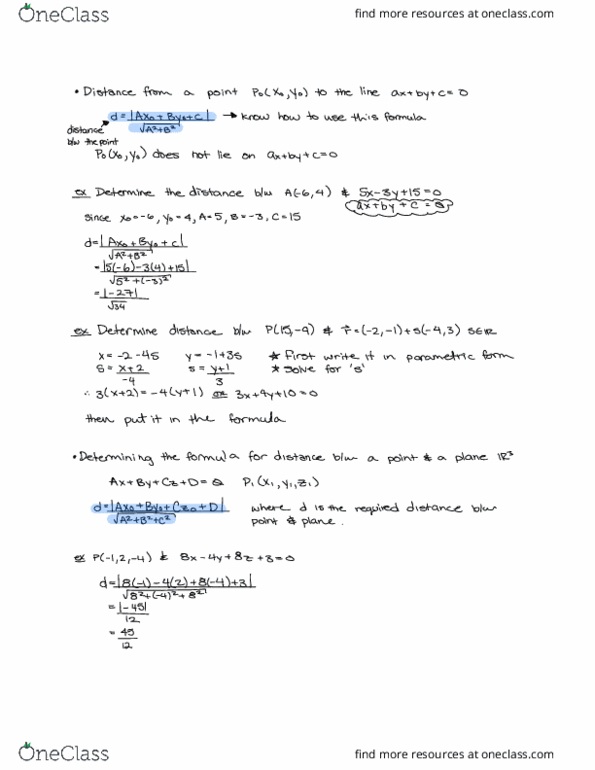 OneClass
find more resources at oneclass.com
• Distance from a point P₀(x₀,y₀) to the line ax+by+c=0
d = |Ax₀ + By₀ + c| / √A²+B² → know how to use this formula
distance b/w the point
P₀(x₀,y₀) does not lie on ax+by+c=0
ex Determine the distance b/w A(-6,4) & 5x-3y+15=0
ax+by+c=0
since x₀=-6, y₀=4, A=5, B=-3, C=15
d = |Ax₀ + By₀ + c| / √A²+B²
= |5(-6)-3(4)+15| / √5²+(-3)²
= |-27| / √34
ex Determine distance b/w P(15,-9) & r⃗=(-2,-1)+s(-4,3) sεIR
x=-2-4s y=-1+3s * First write it in parametric form
s = x+2 / -4 s = y+1 / 3 * solve for 's'
∴ 3(x+2)=-4(y+1) or 3x+4y+10=0
then put it in the formula
• Determining the formula for distance b/w a point & a plane IR³
Ax+By+Cz+D=0 P₁(x₁,y₁,z₁)
d = |Ax₀ + By₀ + Cz₀ + D| / √A²+B²+C² where d is the required distance b/w
point & plane.
ex P(-1,2,-4) & 8x-4y+8z+3=0
d = |8(-1)-4(2)+8(-4)+3| / √8²+(-4)²+8²
= |-45| / 12
= 45 / 12
OneClass
find more resources at oneclass.com